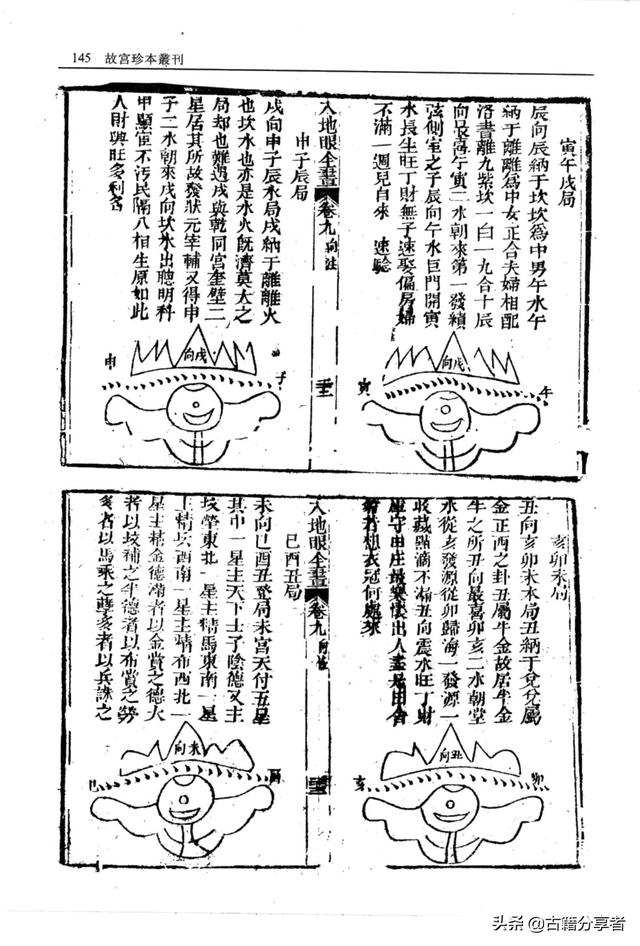 145 故宮珍本叢刊
寅午戌局
辰向辰納于坎坎爲中男午水午
納于離離爲中女正合夫婦相配
洛書離九紫坎一白一九合十辰
向最高午寅二水朝來第一發續
弦側室之子辰向午水巨門開寅
水長生旺丁財無子速娶偏房婦
不滿一週兒自來 速驗
戌向
寅
午
入地眼全書
卷九
向註
申子辰局
戌向申子辰水局戌納于離離火
也坎水也亦是水火既濟莫大之
局却也難遇戌與乾同宮奎壁二
星居其所故發狀元宰輔又得申
子二水朝來戌向坎水出聰明科
甲顯宦不污民隔八相生原如此
人財興旺多利名
戌向
申
子
亥卯未局
丑向亥卯未水局丑納于兌兌屬
金正西之卦丑屬牛金故居牛金
牛之所丑向最喜卯亥二水朝堂
水從亥發源從卯歸海一發源一
收藏點滴不漏丑向震水旺丁財
守田庄最樂懷出人盡是田舍
想衣冠何處來
丑向
亥
卯
入地眼全書
卷九
巳酉丑局
未向巳酉丑登局未宮天付五星
其中一星主天下士子陰德又主
榮東北一星主精馬東南一星
主精 西南一星主精布西北一
星主精金德滿者以金賞之德大
者以 補之半德者以布賞之勞
多者以馬乘之孽多者以兵誅之
未向
巳
酉
头条 @古籍分享者